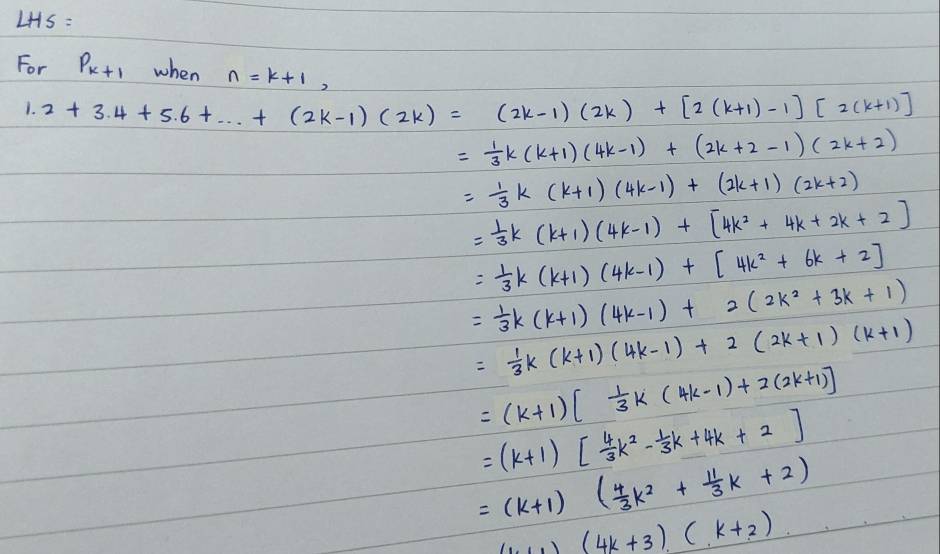 LHS :
For Pk+1 when n = k+1 ,
1.2 + 3.4 + 5.6 + ... + (2k-1)(2k) = (2k-1)(2k) + [2(k+1)-1][2(k+1)]
= 1/3 k (k+1)(4k-1) + (2k+2-1)(2k+2)
= 1/3 k (k+1)(4k-1) + (2k+1)(2k+2)
= 1/3 k (k+1)(4k-1) + [4k² + 4k + 2k + 2]
= 1/3 k (k+1)(4k-1) + [4k² + 6k + 2]
= 1/3 k (k+1)(4k-1) + 2(2k² + 3k + 1)
= 1/3 k (k+1)(4k-1) + 2(2k+1)(k+1)
= (k+1)[1/3 k (4k-1) + 2(2k+1)]
= (k+1)[4/3 k² - 1/3 k + 4k + 2]
= (k+1)(4/3 k² + 11/3 k + 2)
(4k+3)(k+2)